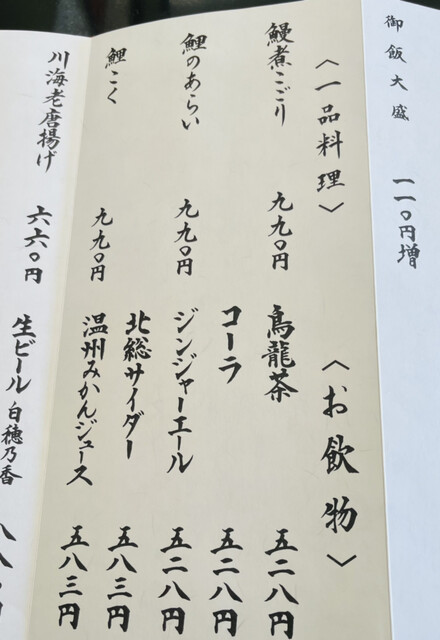 御飯大盛 一一〇円増
〈一品料理〉
鰻煮こごり 九九〇円
鯉のあらい 九九〇円
鯉こく 九九〇円
川海老唐揚げ 六六〇円
〈お飲物〉
烏龍茶 五二八円
コーラ 五二八円
ジンジャーエール 五二八円
北総サイダー 五八三円
温州みかんジュース 五八三円
生ビール 白穂乃香 八八